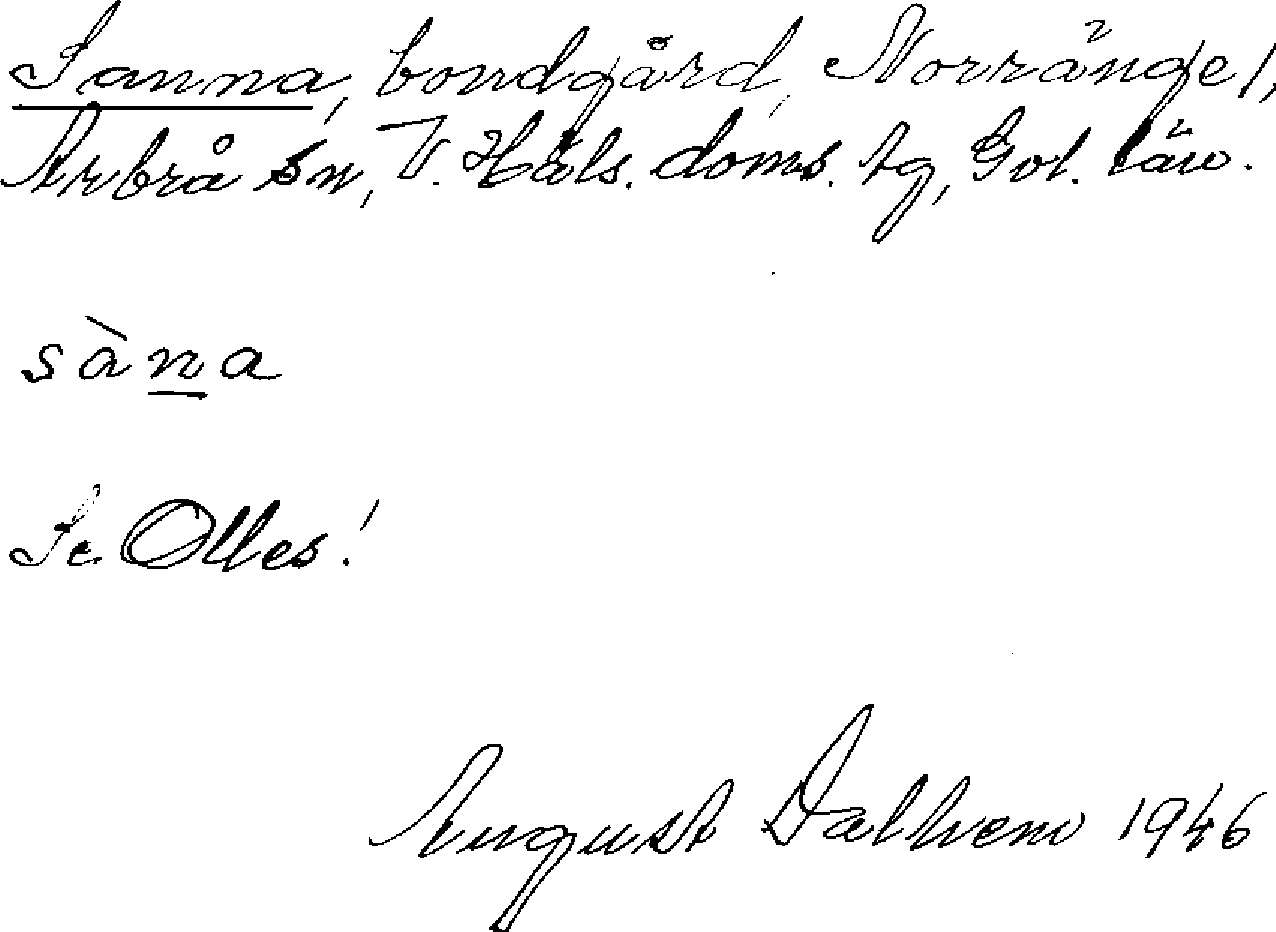 Sanna, bondgård, Norränge 1,
Arbrå sn, V. Häls. doms. tg, Gvl. län.
sàna
Se Olles!
August Dalhem 1946